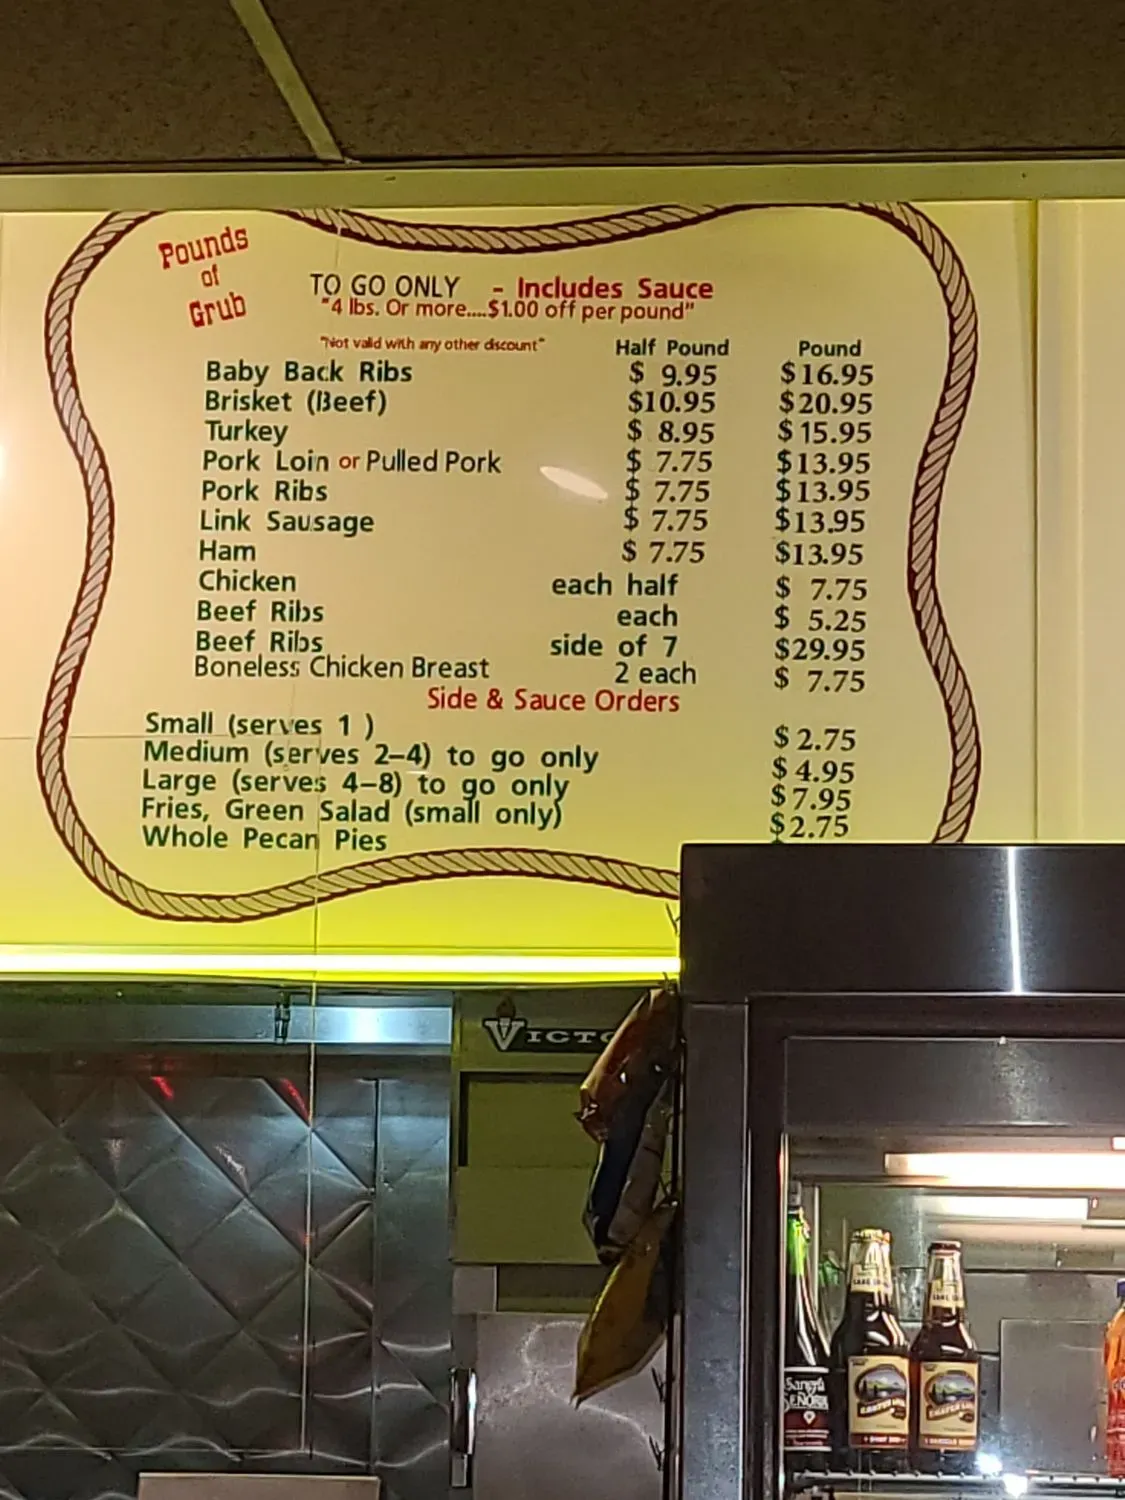 Pounds
of
Grub
TO GO ONLY - Includes Sauce
"4 lbs. Or more....$1.00 off per pound"
"Not valid with any other discount"
Half Pound Pound
Baby Back Ribs $ 9.95 $16.95
Brisket (Beef) $10.95 $20.95
Turkey $ 8.95 $15.95
Pork Loin or Pulled Pork $ 7.75 $13.95
Pork Ribs $ 7.75 $13.95
Link Sausage $ 7.75 $13.95
Ham $ 7.75 $13.95
Chicken each half $ 7.75
Beef Ribs each $ 5.25
Beef Ribs side of 7 $29.95
Boneless Chicken Breast 2 each $ 7.75
Side & Sauce Orders
Small (serves 1 ) $2.75
Medium (serves 2-4) to go only $4.95
Large (serves 4-8) to go only $7.95
Fries, Green Salad (small only) $2.75
Whole Pecan Pies
VICTO
Sangria
SEÑORIAL